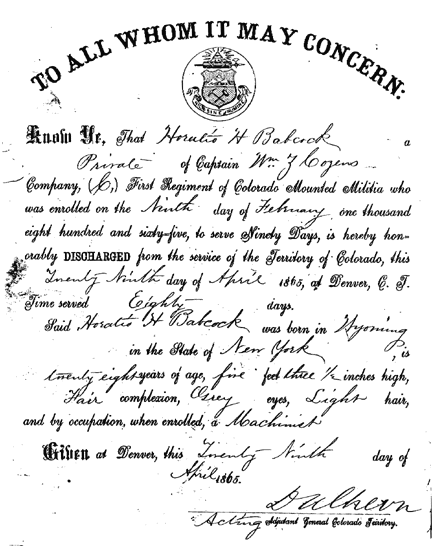 TO ALL WHOM IT MAY CONCERN:
Know Ye, That Horatio H Babcock a
Private of Captain Wm Z Cozens
Company, (C,) First Regiment of Colorado Mounted Militia who
was enrolled on the Ninth day of February one thousand
eight hundred and sixty-five, to serve Ninety Days, is hereby hon-
orably DISCHARGED from the service of the Territory of Colorado, this
Twenty Ninth day of April 1865, at Denver, C. T.
Time served Eighty days.
Said Horatio H Babcock was born in Wyoming
in the State of New York, is
twenty eight years of age, five feet three ½ inches high,
Fair complexion, Grey eyes, Light hair,
and by occupation, when enrolled, a Machinist
Given at Denver, this Twenty Ninth day of
April 1865.
Acting Adjutant General Colorado Territory.